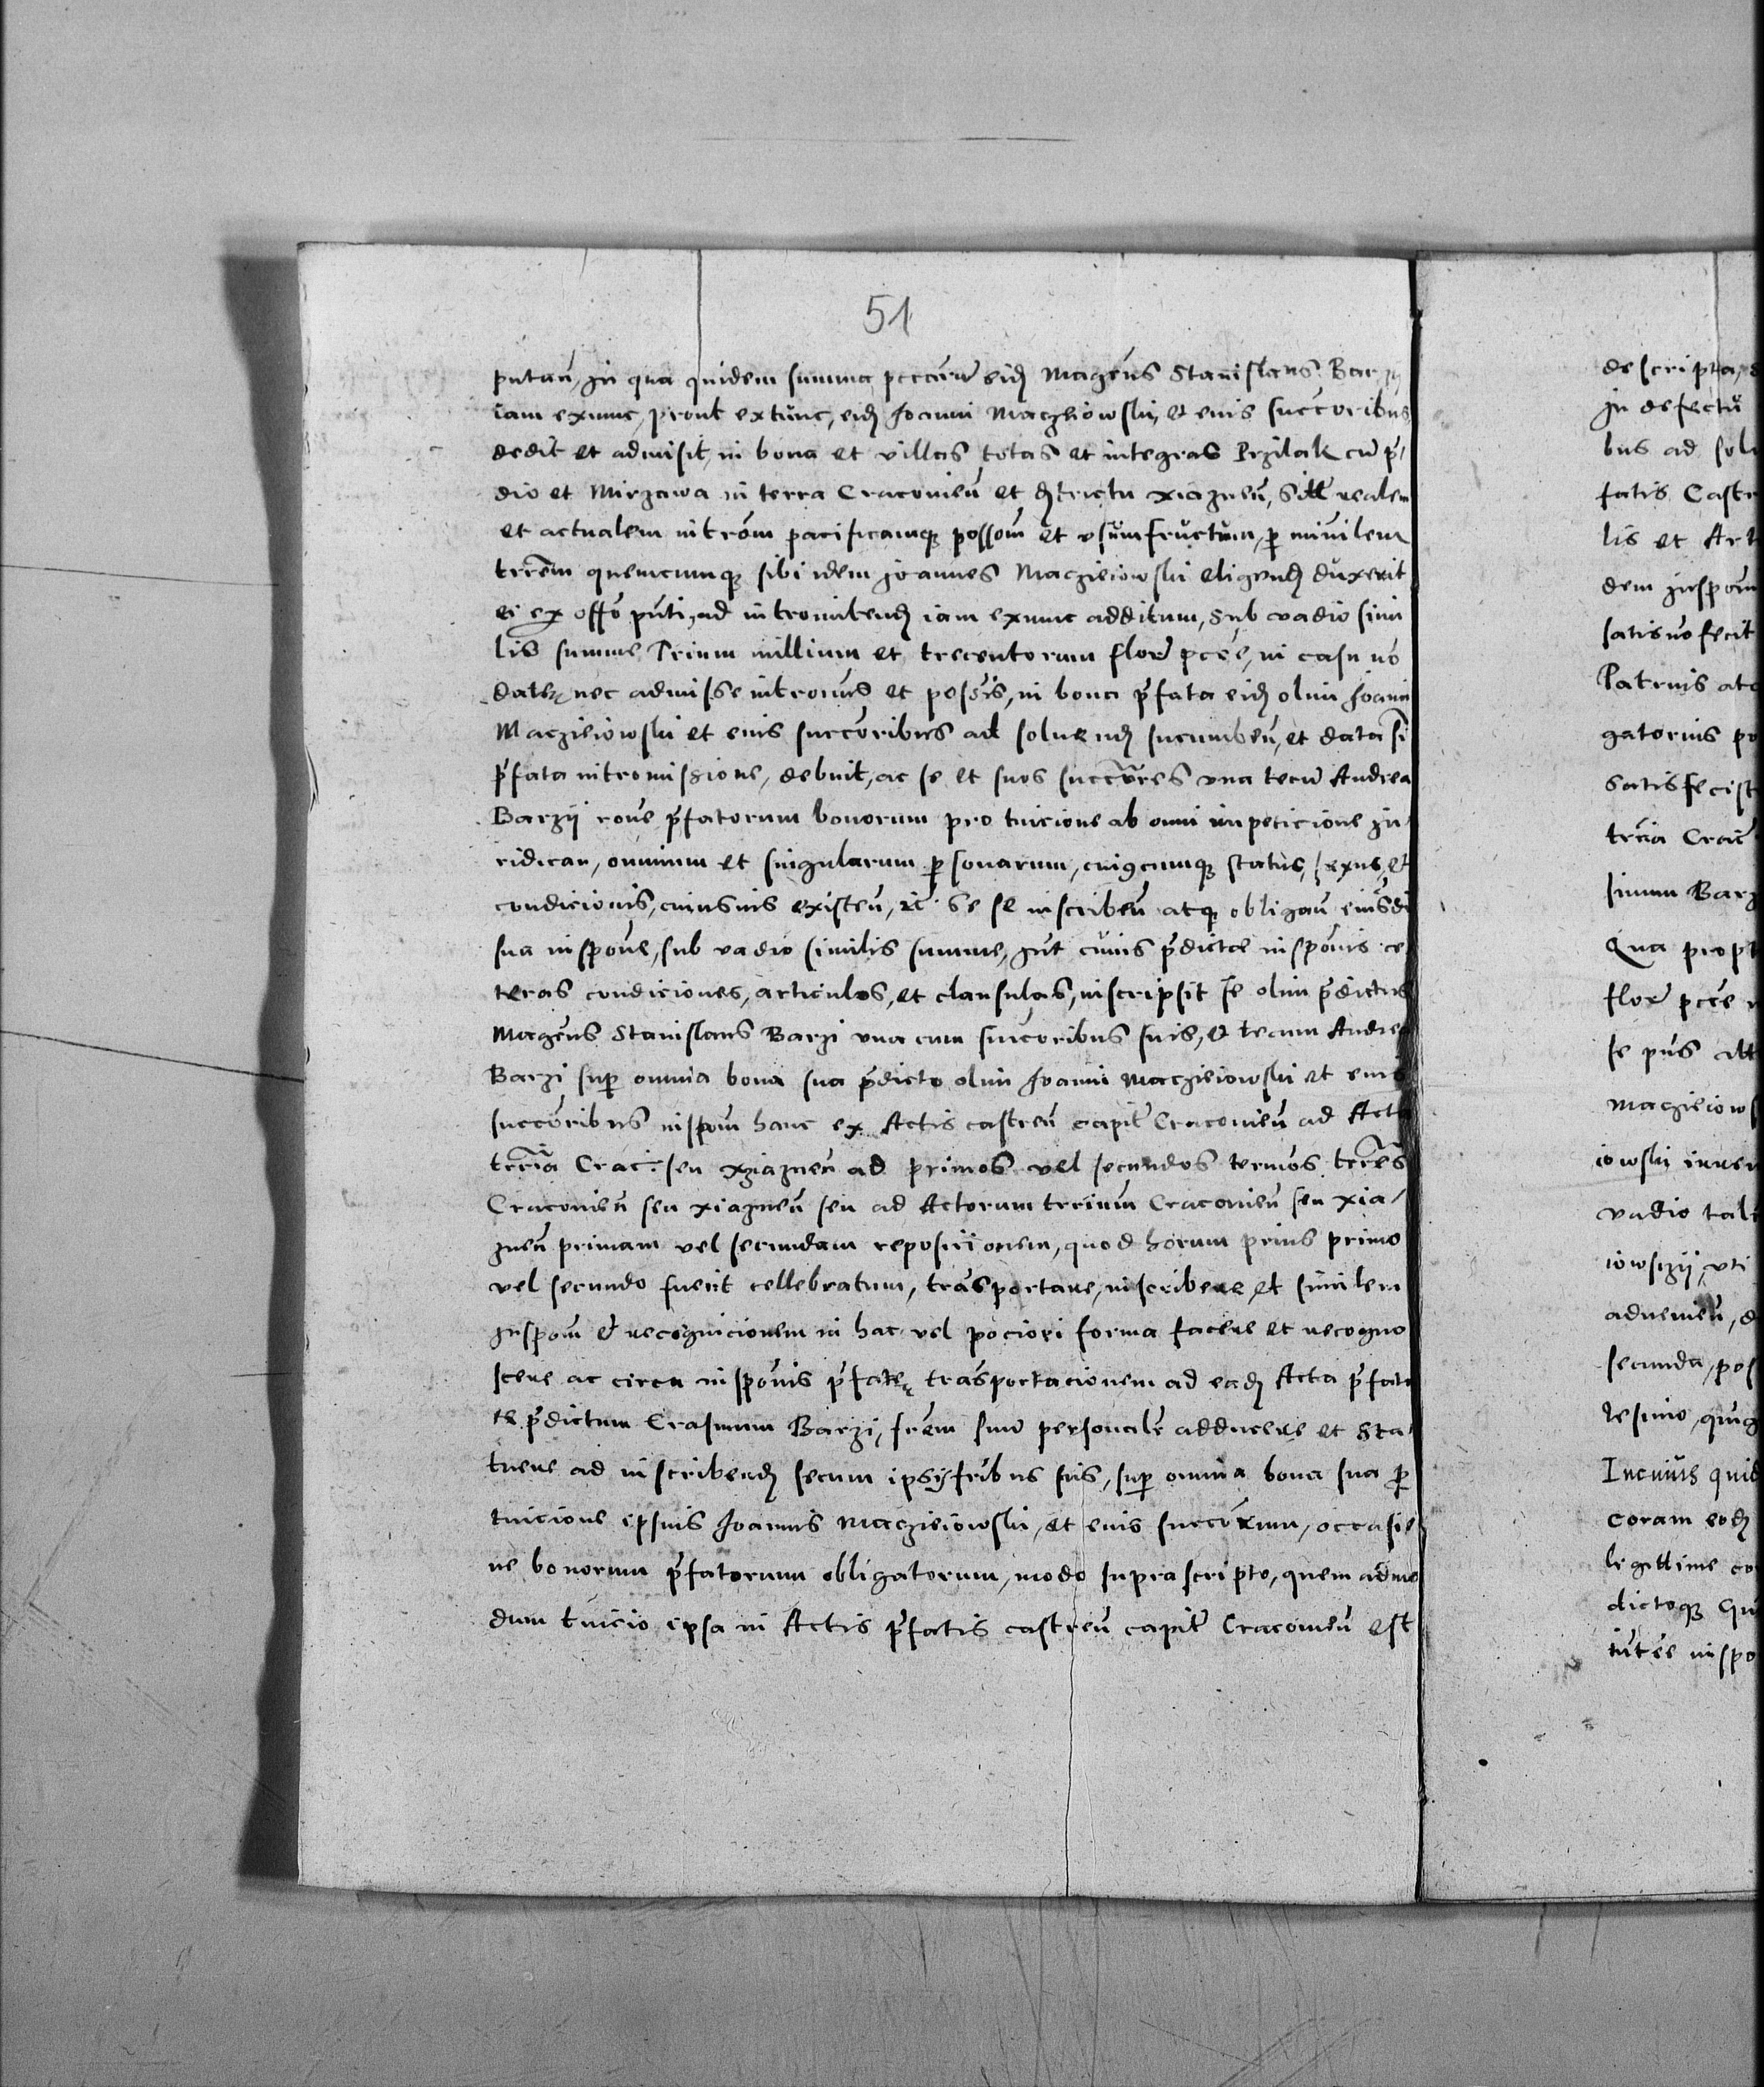 51
putan̄, in qua quidem summa pccārū eid Magcūs Stanislaus Bar
iam exnunc, prout extunc, eid Joanni Maczhiowski, et eius succoribus
dedit et admisit, in bona et villas totas et integras Przilak cū p̄
dio et Mirzawa in terra Cracovien̄ et districtu xiaznen̄, realem
et actualem introm̄ pacificamq possom̄ et usumfructum, p
trrēm quemcumq sibi idem Joannes Maczieiowski eligend duxerit
ei ex offō pūti, ad intromitend iam exnunc additum, sub vadio simi
lis summe Trium millium et trecentorum florͬ pccē, in casu nō
date nec admisse intromis et possis, in bona p̄fata eid olim Joanni
Macziciowski et eius succoribus ad soluend sucumben̄, et data si
p̄fata intromissione, debuit, ac se et suos succōres una tecū Andrea
Barzij rōne p̄fatorum bonorum pro tuicione ab omni impeticione ju
ridican, omnium et singularum psonarum, cuiuscumq status, sexus, et
condicionis, cuiusuis existen̄, se inscriben̄ atq obligan̄ eiusd
sua inspōne, sub vadio similis summe, p̄dicte inspōnis ce
teras condiciones, articulos, et clausulas, inscripsit se olim p̄dictus
Magcūs Stanislaus Barzi una cum succoribus suis, et tecum Andrea
Barzi sup omnia bona sua p̄dicto olim Joanni Macziciowski et eius
succōribus inspom̄ hanc ex Actis castren̄ capit Cracovien̄ ad Acta
trria Crac: seu xziaznen̄ ad primos vel secundos termos trrēs
Cracovien̄ seu xiaznen̄ seu ad Actorum trrium Cracovien̄ seu xia/
znen̄ primam vel secundam reposicionem, quod horum prius primo
vel secundo fuerit cellebratum, trāsportare, inscribere, et similem
Inspom̄ et recognicionem in hac vel pociori forma facere et recogno
scere ac circa inspōnis p̄fate trāsportacionem ad ead Acta p̄fata
te p̄dictum Erasmum Barzi, frēm suū personalr adducere et sta
tuere ad inscribend secum ipsis fribus suis, sup omnia bona sua p
tuicione ipsius Joannis Macziciowski, et eius succōrum, occasio
ne bonorum p̄fatorum obligatorum, modo suprascripto, quem admo
dum tuicio ipsa in Actis p̄fatis castren̄ capit Cracovien̄ est
descripta,
In defectū
bus ad solu
fatis Castr
lis et Art
dem Inspom̄
satis nō fecit
Patruis
gatorius po
satisfecist
trria Crac
simum Barz
Qua propt
florͬ pccē
se pūs
Macziciows
iowski
vadio tali
iowszij, uti
aduenien̄,
secunda, pos
tesimo, quīg
In cuius quid
coram eod
legittime co
dictoq
inspo